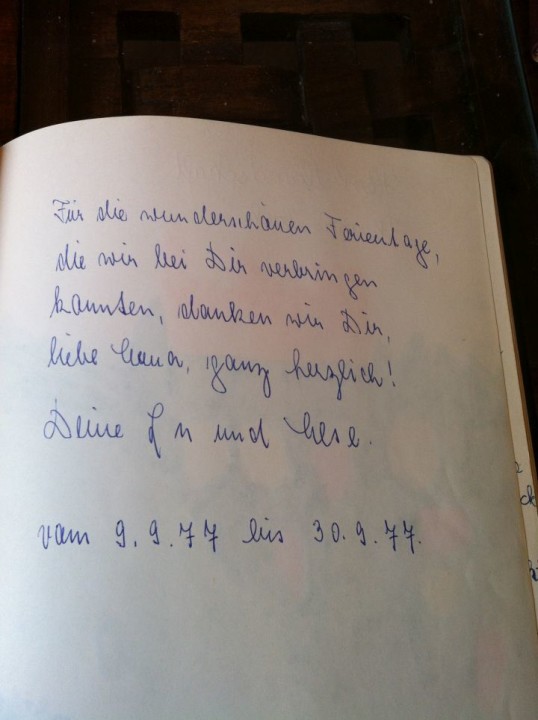 Für die wunderschönen Ferientage,
die wir bei Dir verbringen
konnten, danken wir Dir,
liebe ganz herzlich!
Deine und
vom 9.9.77 bis 30.9.77.